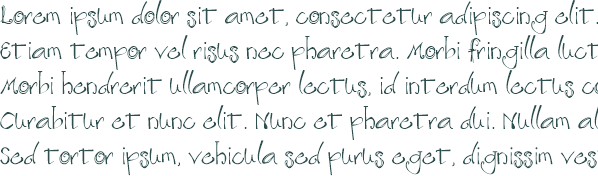 Lorem ipsum dolor sit amet, consectetur adipiscing elit.
Etiam tempor vel risus nec pharetra. Morbi fringilla luct
Morbi hendrerit ullamcorper lectus, id interdum lectus co
Curabitur et nunc elit. Nunc et pharetra dui. Nullam al
Sed tortor ipsum, vehicula sed purus eget, dignissim ves